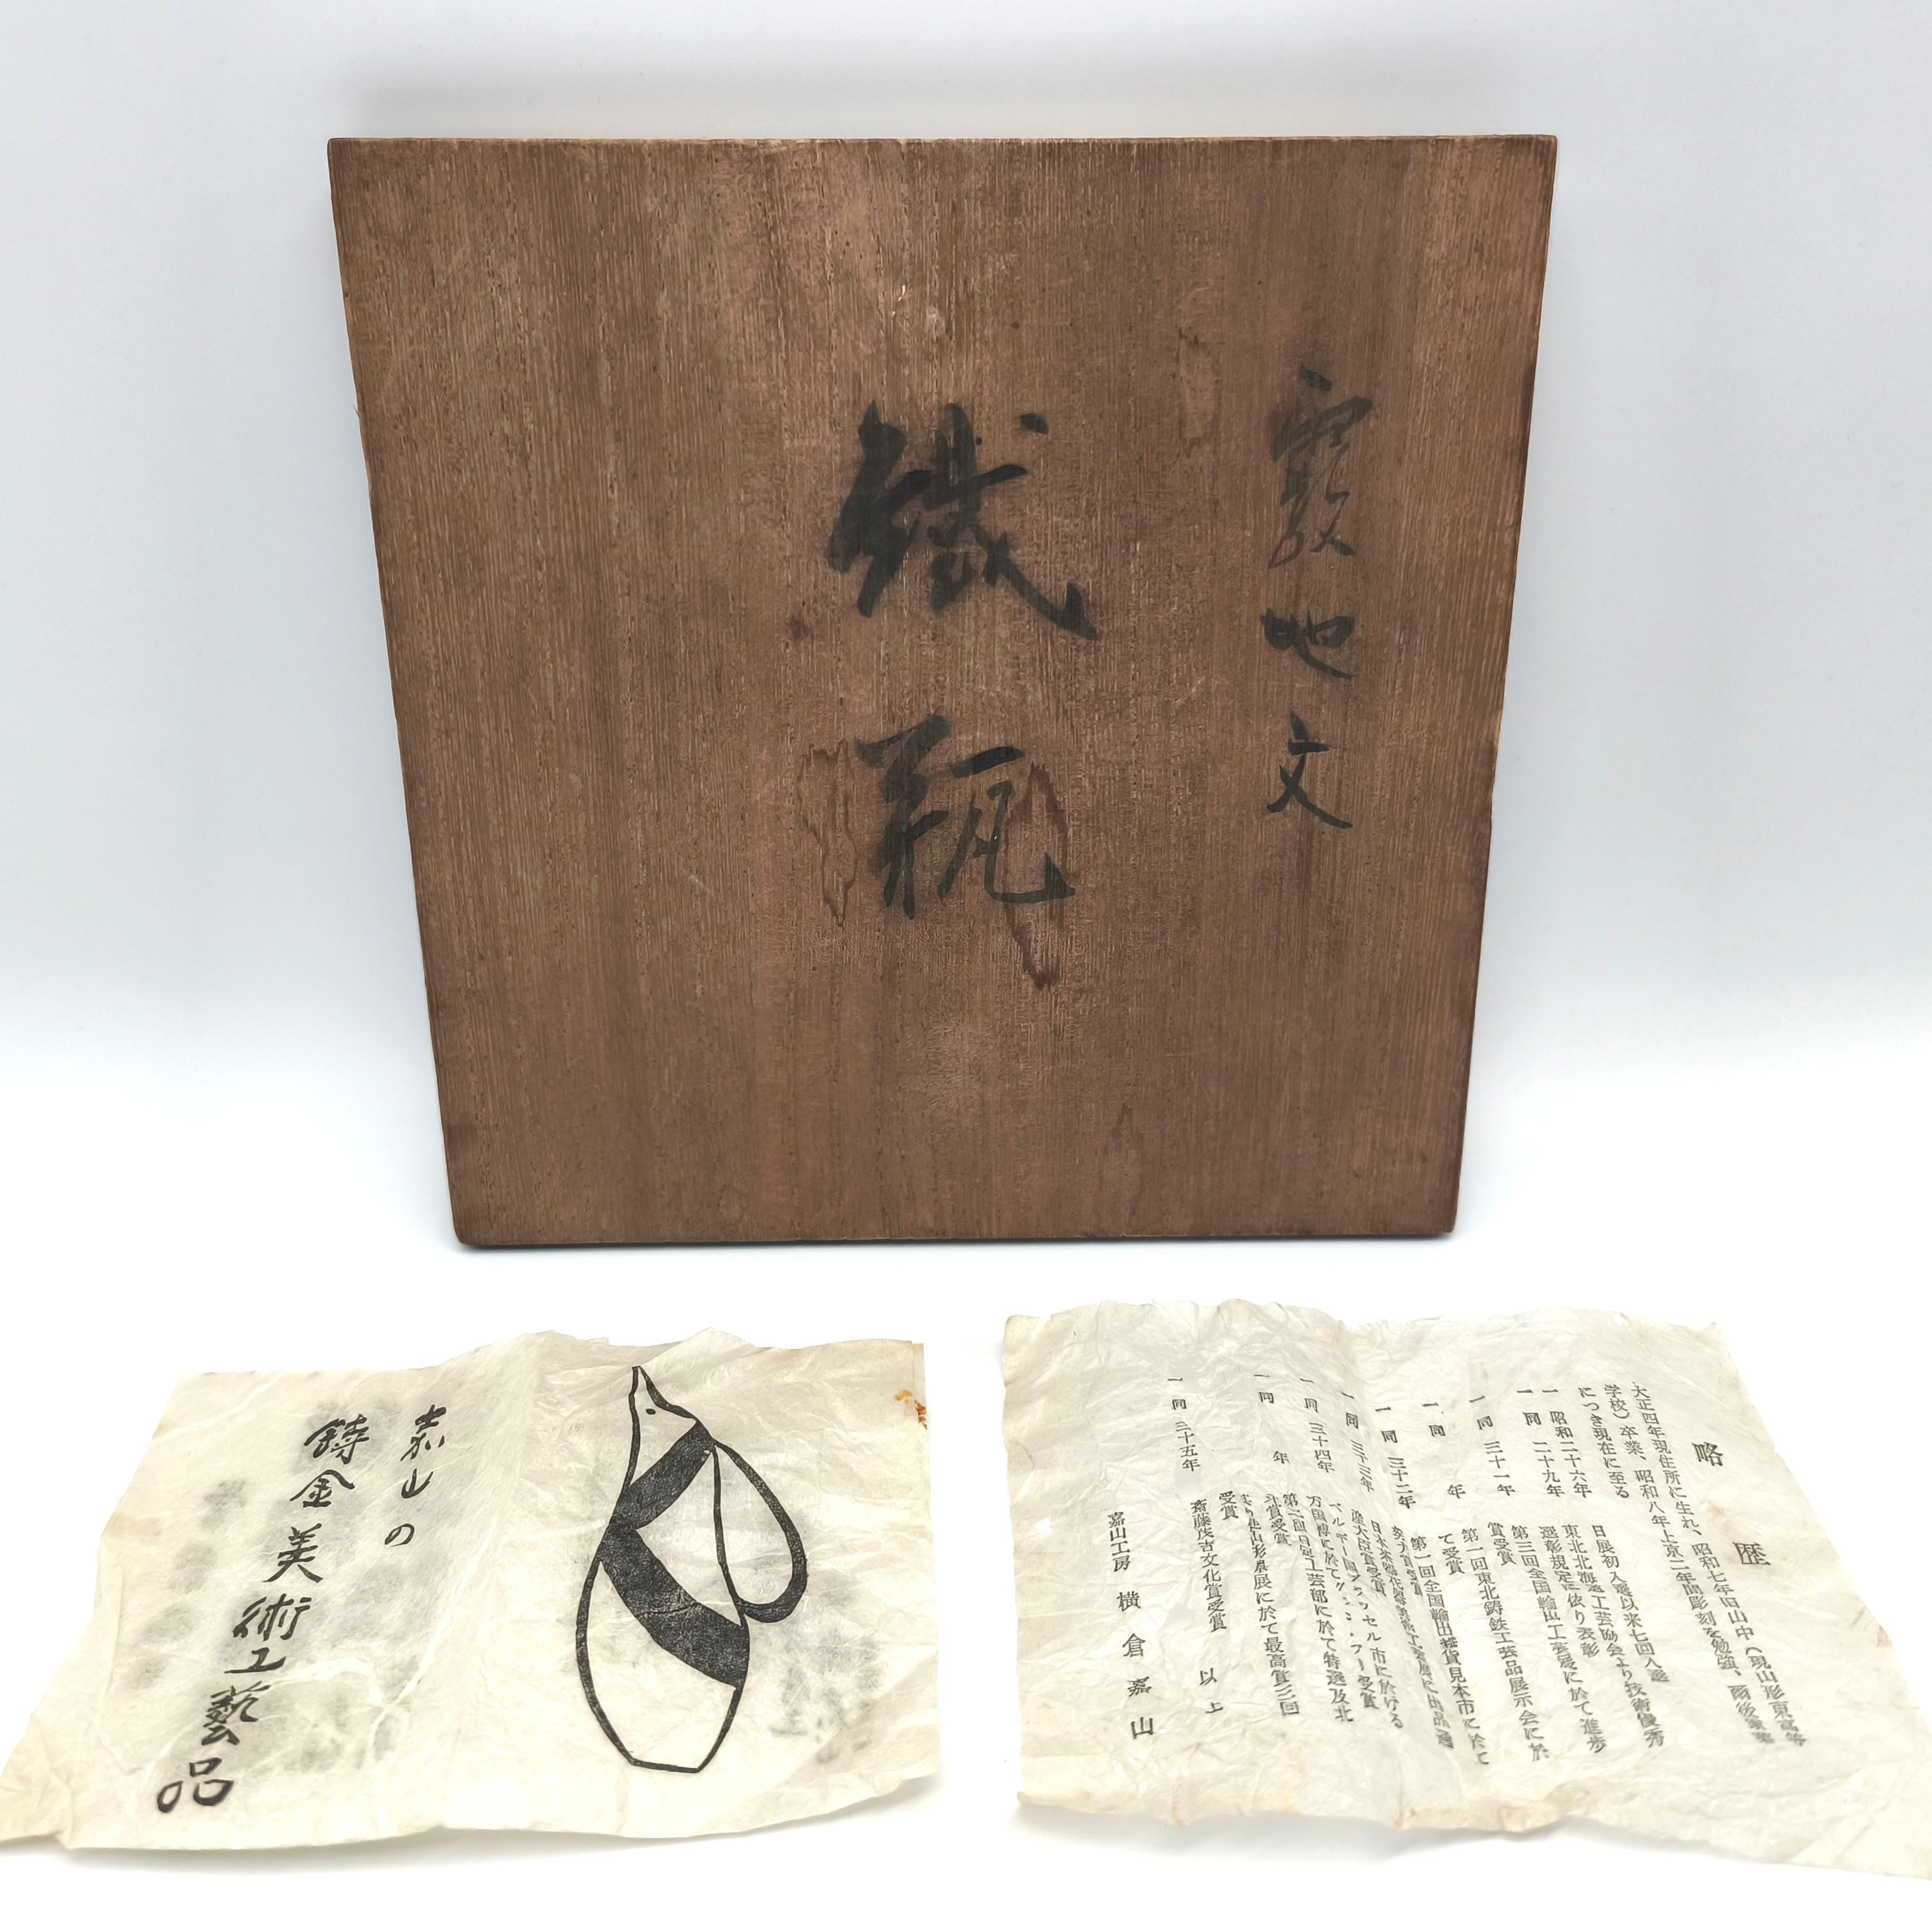 霰地文
鐵瓶
嘉山の
鋳金美術工藝品
略歴
大正四年現住所に生れ、昭和七年旧山中(現山形東高等
学校)卒業、昭和八年上京二年間彫刻を勉強、爾後家業
につき現在に至る
一 昭和二十六年 日展初入選以来七回入選
一 同 二十九年 東北北海道工芸協会より技術優秀
選彰規定に依り表彰
一 同 三十一年 第三回全国輸出工芸展に於て進歩
賞受賞
一 同 年 第一回東北鋳鉄工芸品展示会に於
て受賞
一 同 三十二年 第一回全国輸出雑貨見本市に於て
一 同 三十三年
一 同 三十四年 万国博に於てグラン・プリー受賞
一 同 年 工芸部に於て特選及北
斗賞受賞
より使山形県展に於て最高賞三回
受賞
一 同 三十五年 斎藤茂吉文化賞受賞
以上
嘉山工房 横倉嘉山